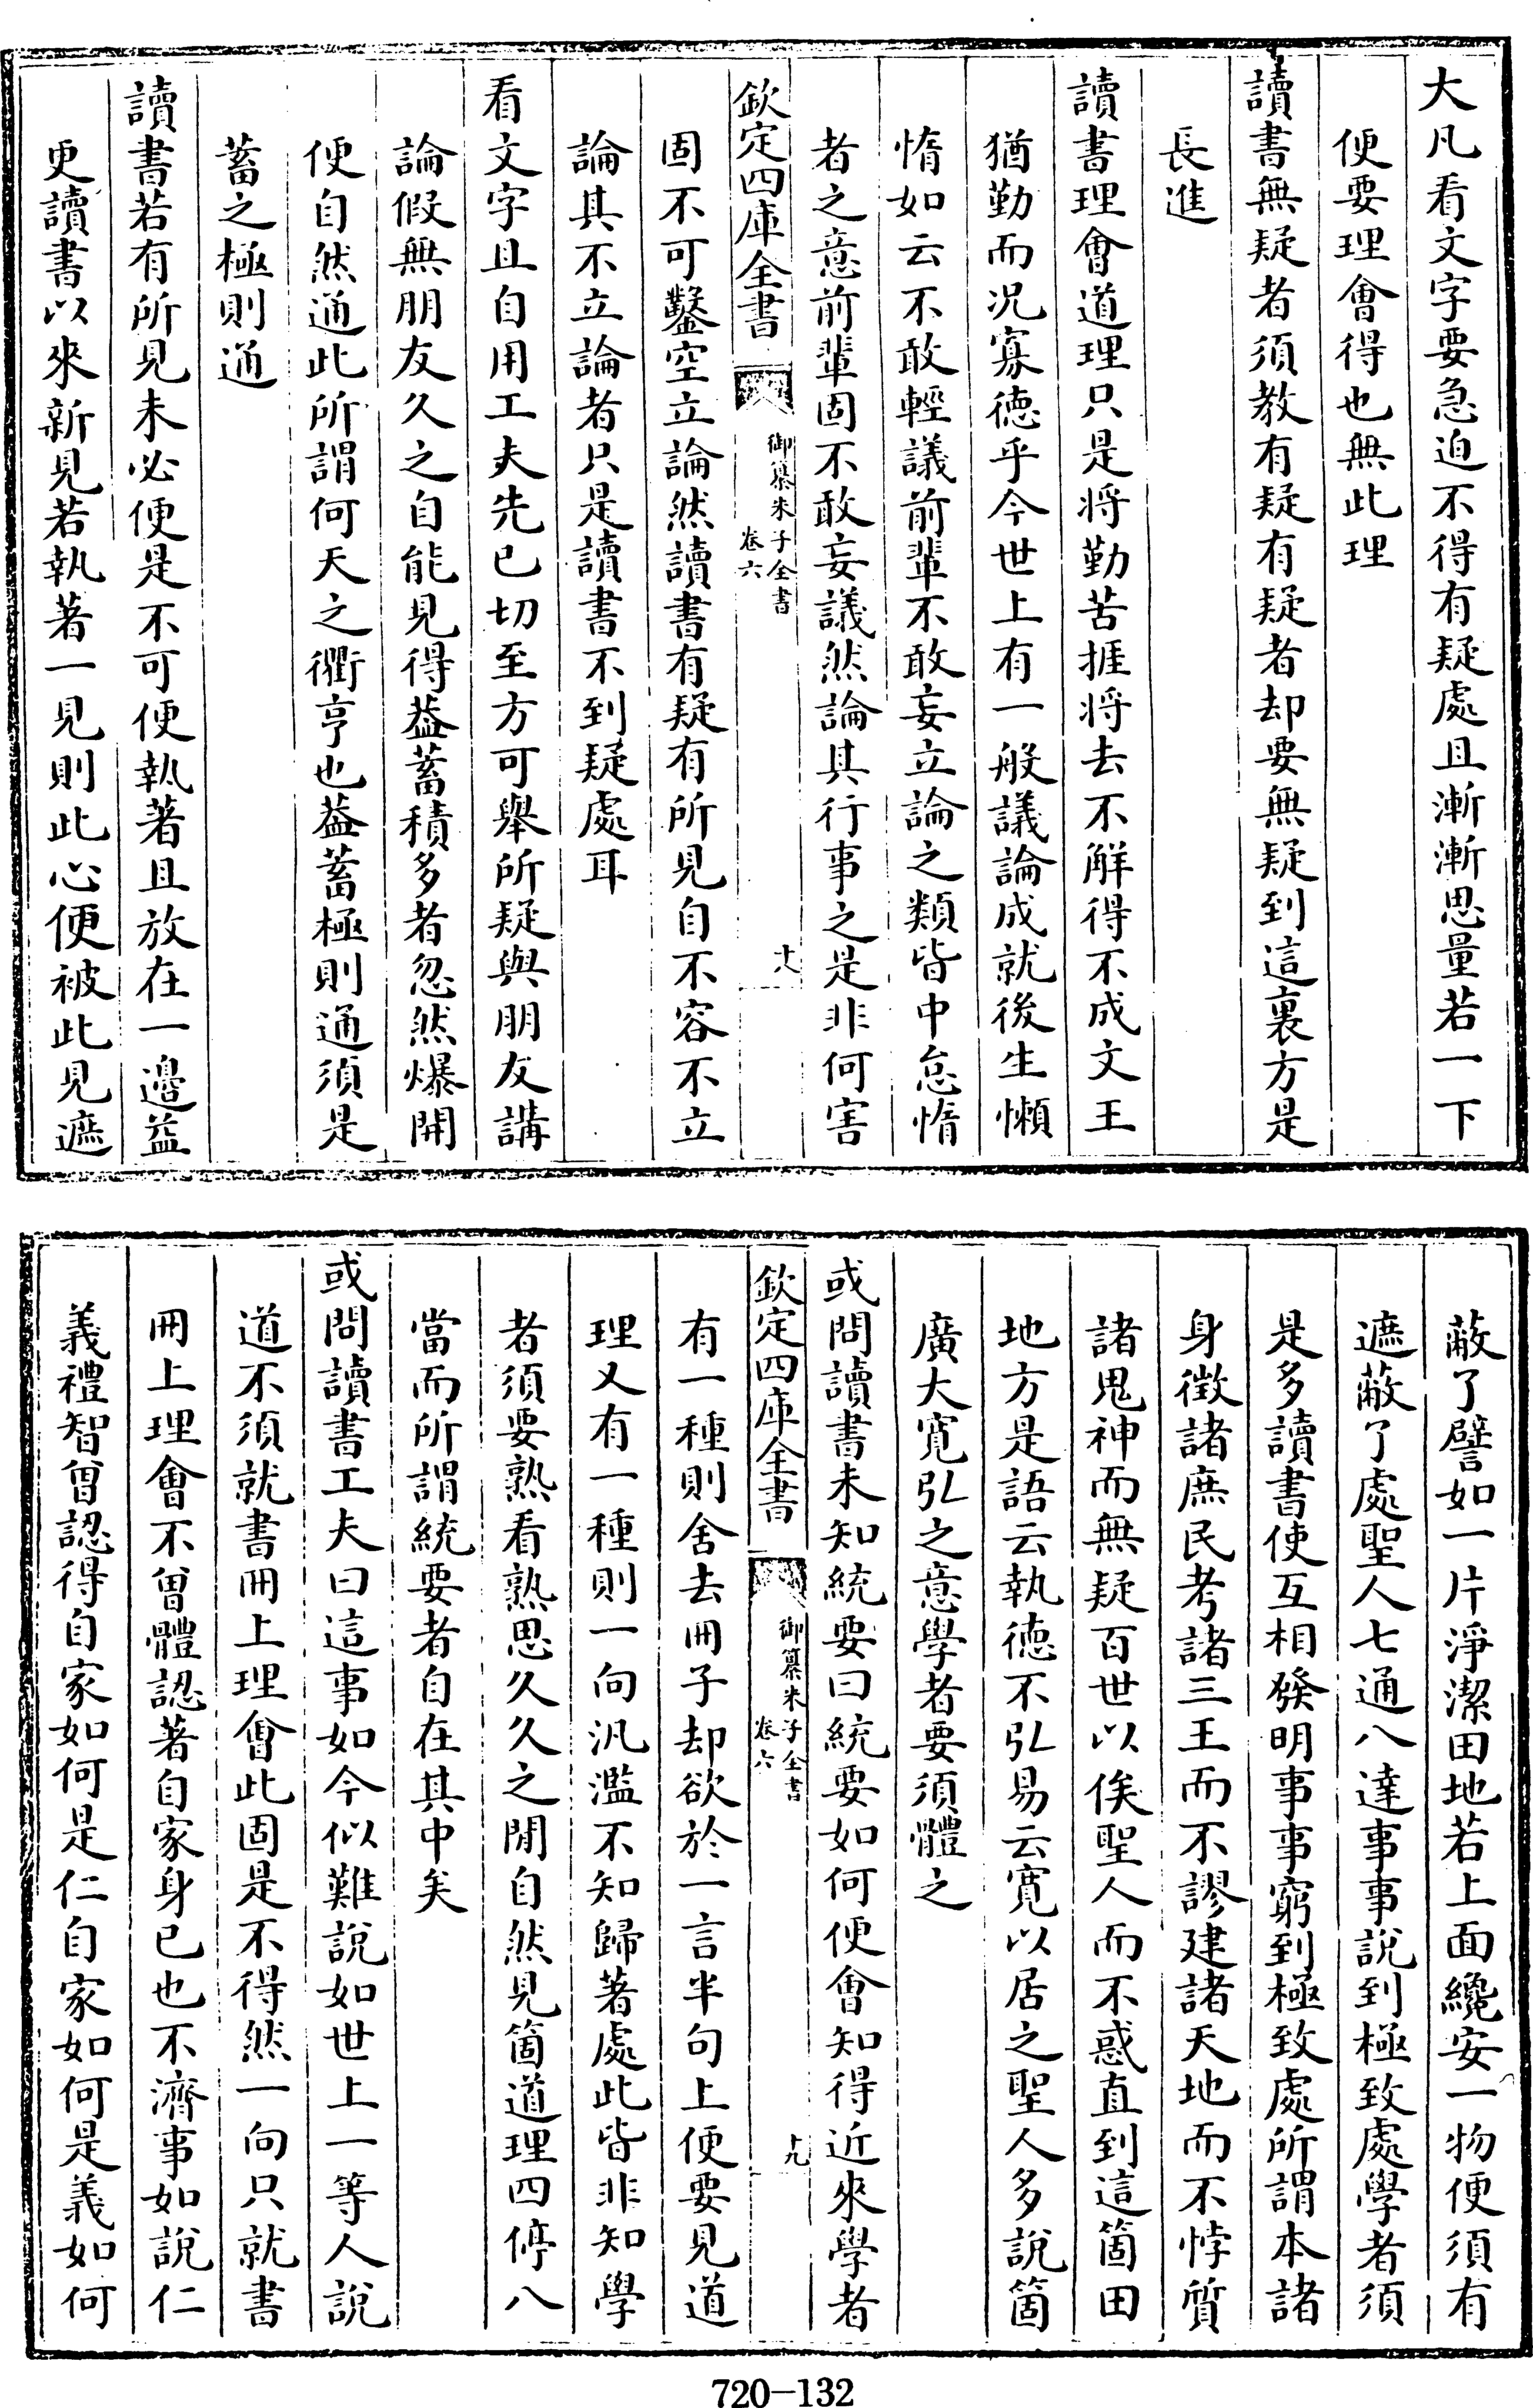 大凡看文字要急迫不得有疑處且漸漸思量若一下
便要理會得也無此理
讀書無疑者須教有疑有疑者却要無疑到這裏方是
長進
讀書理會道理只是將勤苦捱將去不解得不成文王
猶勤而况寡德乎今世上有一般議論成就後生懶
惰如云不敢輕議前輩不敢妄立論之類皆中怠惰
者之意前輩固不敢妄議然論其行事之是非何害
欽定四庫全書
御纂朱子全書
卷六
十八
固不可鑿空立論然讀書有疑有所見自不容不立
論其不立論者只是讀書不到疑處耳
看文字且自用工夫先已切至方可舉所疑與朋友講
論假無朋友久之自能見得葢蓄積多者忽然爆開
便自然通此所謂何天之衢亨也葢蓄極則通須是
蓄之極則通
讀書若有所見未必便是不可便執著且放在一邊益
更讀書以來新見若執著一見則此心便被此見遮
蔽了譬如一片淨潔田地若上面纔安一物便須有
遮蔽了處聖人七通八達事事說到極致處學者須
是多讀書使互相發明事事窮到極致處所謂本諸
身徵諸庶民考諸三王而不謬建諸天地而不悖質
諸鬼神而無疑百世以俟聖人而不惑直到這箇田
地方是語云執德不弘易云寛以居之聖人多說箇
廣大寛弘之意學者要須體之
或問讀書未知統要曰統要如何便會知得近來學者
欽定四庫全書
御纂朱子全書
卷六
十九
有一種則舍去冊子却欲於一言半句上便要見道
理又有一種則一向汎濫不知歸著處此皆非知學
者須要熟看熟思久久之間自然見箇道理四停八
當而所謂統要者自在其中矣
或問讀書工夫曰這事如今似難說如世上一等人說
道不須就書冊上理會此固是不得然一向只就書
冊上理會不曾體認著自家身已也不濟事如說仁
義禮智曾認得自家如何是仁自家如何是義如何
720-132